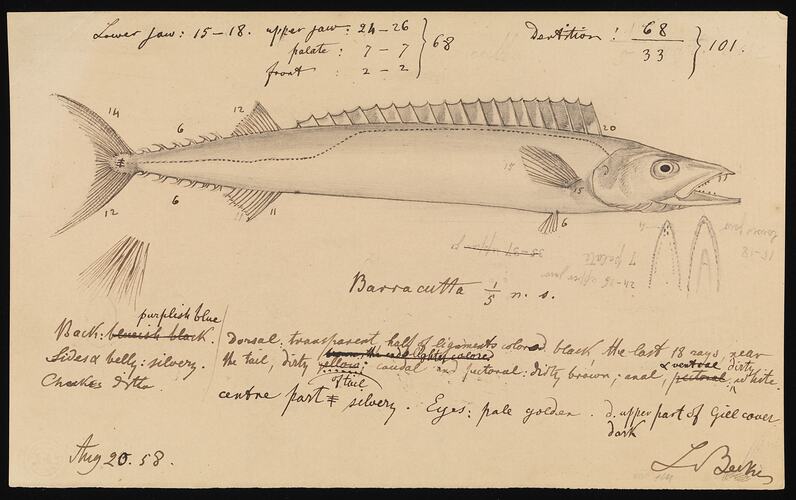 Lower jaw: 15 - 18. upper jaw: 24 - 26
palate: 7 - 7
front: 2 - 2
68
Dentition: 68
33
101.
14
6
12
20
15
15
12
6
11
11
6
33-37 upper j
24-26 upper jaw
7 palate
4
lower jaw
15-18
Barracutta 1/5 n. s.
purplish blue
Back: blueish black.
Sides & belly: silvery.
Cheekes ditto
Dorsal, transparent, half of ligaments colored black, the last 18 rays, near
the tail, dirty yellow; caudal and pectoral: dirty brown; anal, pectoral & ventral dirty white.
of tail
centre part ǂ silvery. Eyes: pale golden. d. upper part of Gill cover
dark
Aug 20. 58.
L Becker